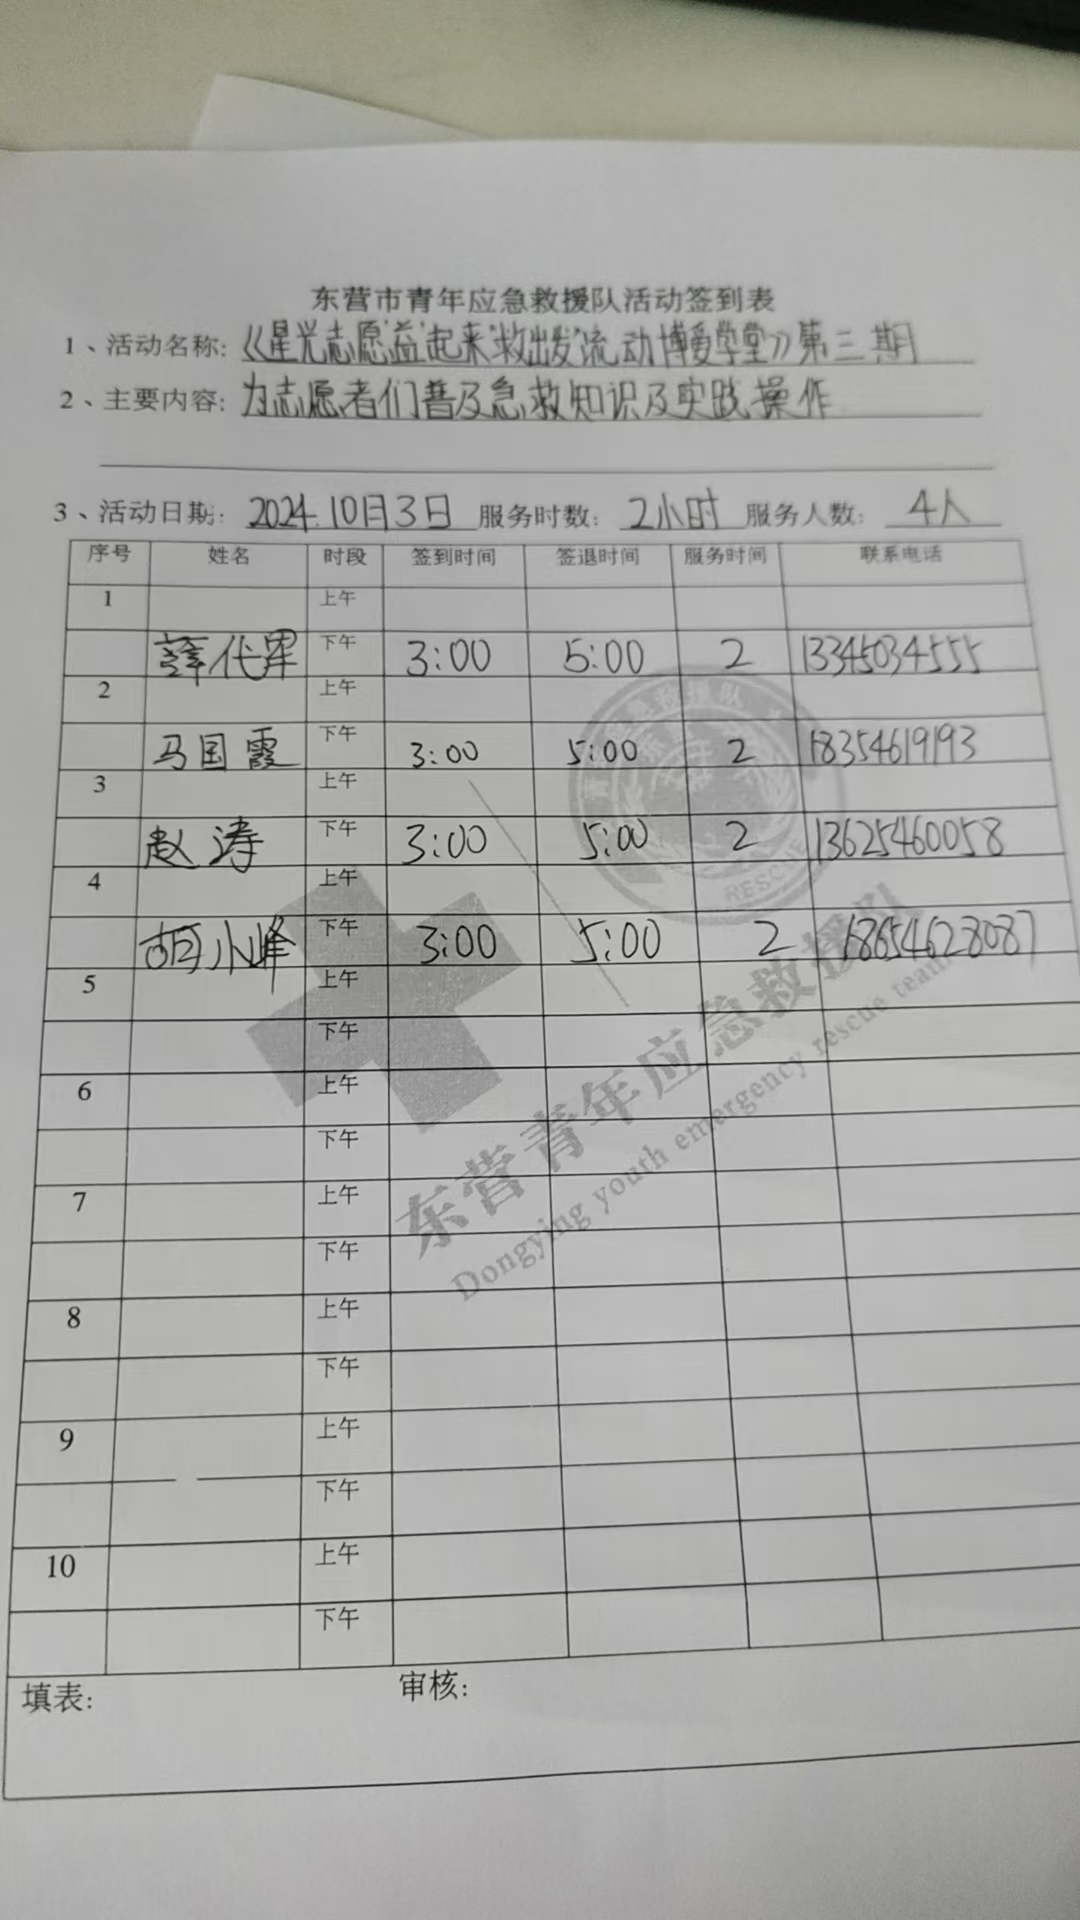 东营市青年应急救援队活动签到表
1、活动名称：《星光志愿'益'起来'救'出发流动博爱学堂》第三期
2、主要内容：为志愿者们普及急救知识及实践操作
3、活动日期：2024.10月3日 服务时数：2小时 服务人数：4人
序号 姓名 时段 签到时间 签退时间 服务时间 联系电话
1 上午
薛代军 下午 3:00 5:00 2 13345034555
2 上午
马国霞 下午 3:00 5:00 2 18354619193
3 上午
赵涛 下午 3:00 5:00 2 13625460058
4 上午
胡小峰 下午 3:00 5:00 2 18654628087
5 上午
下午
6 上午
下午
7 上午
下午
8 上午
下午
9 上午
下午
10 上午
下午
填表： 审核：
东营青年应急救援队
Dongying youth emergency rescue team
RESCUE